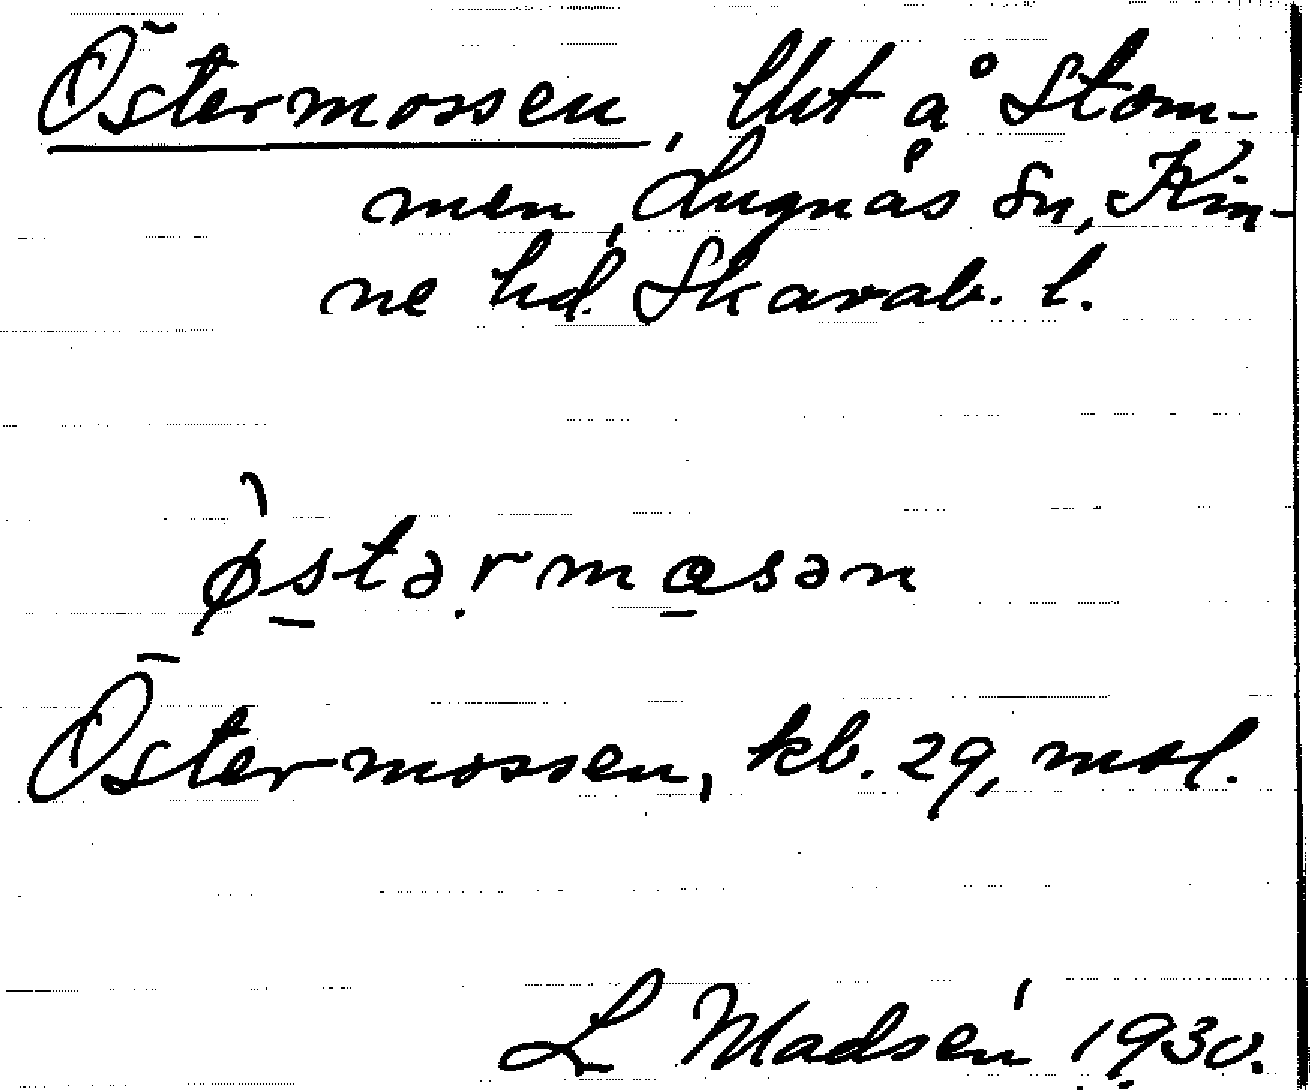 Östermossen, Utt å Stom-
men, Lugnås Sn, Kin-
ne hd. Skarab. l.
østərmɷsən
Östermossen, kb. 29, msl.
L Madsén 1930.